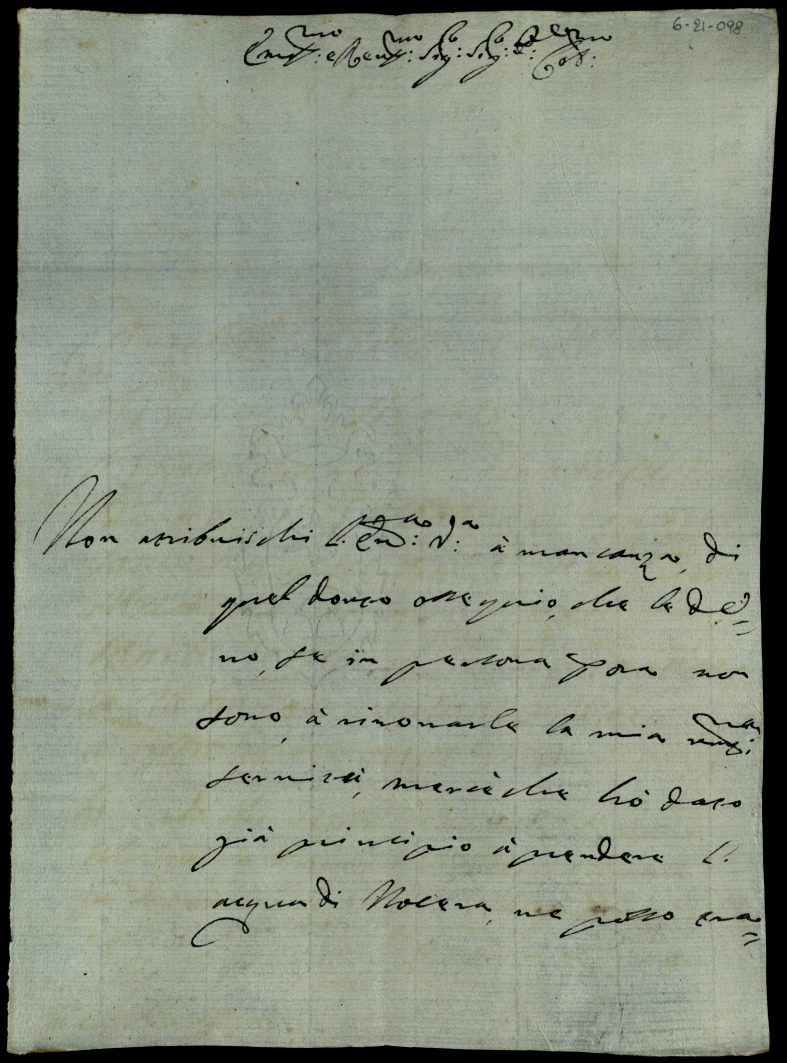 6-21-098
Em.mo: e Reu.mo: Sig.: Sig.: e P.rone Col.mo:
Non atribuischi l'Em.za: V.a: à mancanza, di
quel douuto ossequio, che le de=
uo, se in persona p ora non
sono, à rinouarle la mia um.ma:
seruitù, mercè che hò dato
già principio à prendere l'
acqua di Nocera, ne posso tra=